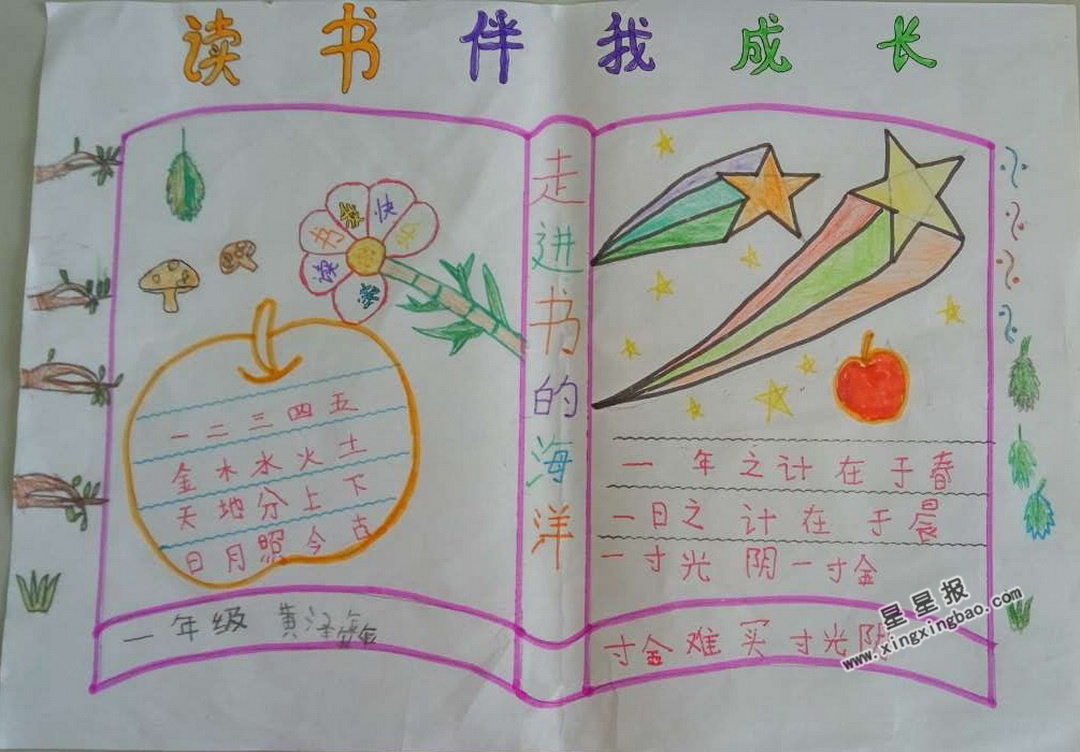 读书伴我成长
走进书的海洋
读书
快乐
一二三四五
金木水火土
天地分上下
日月照今古
一年级 黄泽
一年之计在于春
一日之计在于晨
一寸光阴一寸金
寸金难买寸光阴
星星报
www.xingxingbao.com